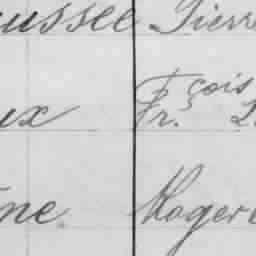 ussee Pierr
ux Fr.çois L
ne Roger